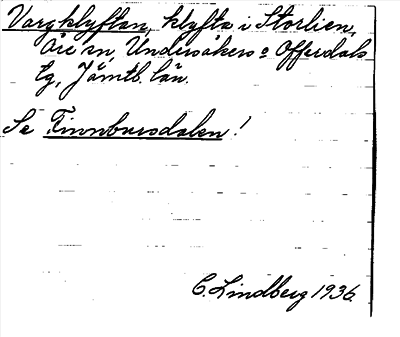 Vargklyftan, klyfta i Storlien,
Åre sn, Undersåkers o Offerdals
tg, Jämtl. län.
Se Finnbursdalen!
C. Lindberg 1936.